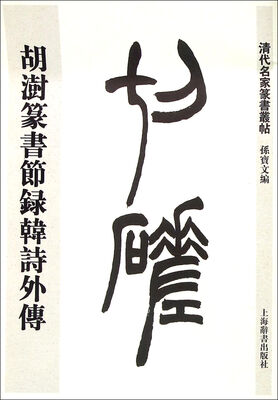 清代名家篆書叢帖
孫寶文編
上海辭書出版社
切磋
胡澍篆書節録韓詩外傳